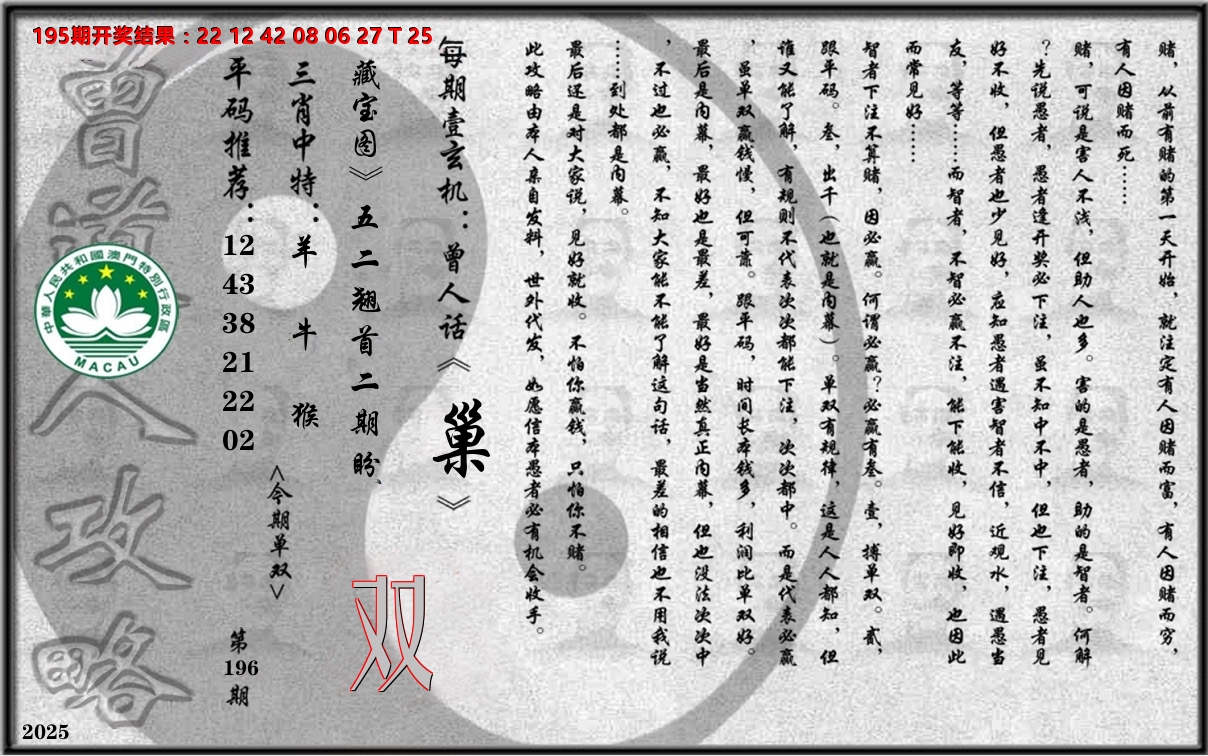 195期开奖结果：22 12 42 08 06 27 T 25
赌，从前有赌的第一天开始，就注定有人因赌而富，有人因赌而穷，
有人因赌而死……
赌，可说是害人不浅，但助人也多。害的是愚者，助的是智者。何解
？先说愚者，愚者逢开奖必下注，虽不知中不中，但也下注，愚者见
好不收，但愚者也少见好，应知愚者遇害智者不信，近观水，遇愚当
友，等等……而智者，不智必赢不注，能下能收，见好即收，也因此
而常见好……
智者下注不算赌，因必赢。何谓必赢？必赢有叁。壹，搏单双。贰，
跟平码。叁，出千（也就是内幕）。单双有规律，这是人人都知，但
谁又能了解，有规则不代表次次都能下注，次次都中。而是代表必赢
，虽单双赢钱慢，但可靠。跟平码，时间长本钱多，利润比单双好。
最后是内幕，最好也是最差，最好是当然真正内幕，但也没法次次中
，不过也必赢，不知大家能不能了解这句话，最差的相信也不用我说
……到处都是内幕。
最后还是对大家说，见好就收。不怕你赢钱，只怕你不赌。
此攻略由本人亲自发料，世外代发，如愿信本愚者必有机会收手。
每期壹玄机：曾人话《巢》
藏宝图》五二翘首二期盼
双
三肖中特：羊 牛 猴
<今期单双>
平码推荐：12 43 38 21 22 02
第196期
曾道人攻略
中華人民共和國澳門特別行政區
MACAU
2025